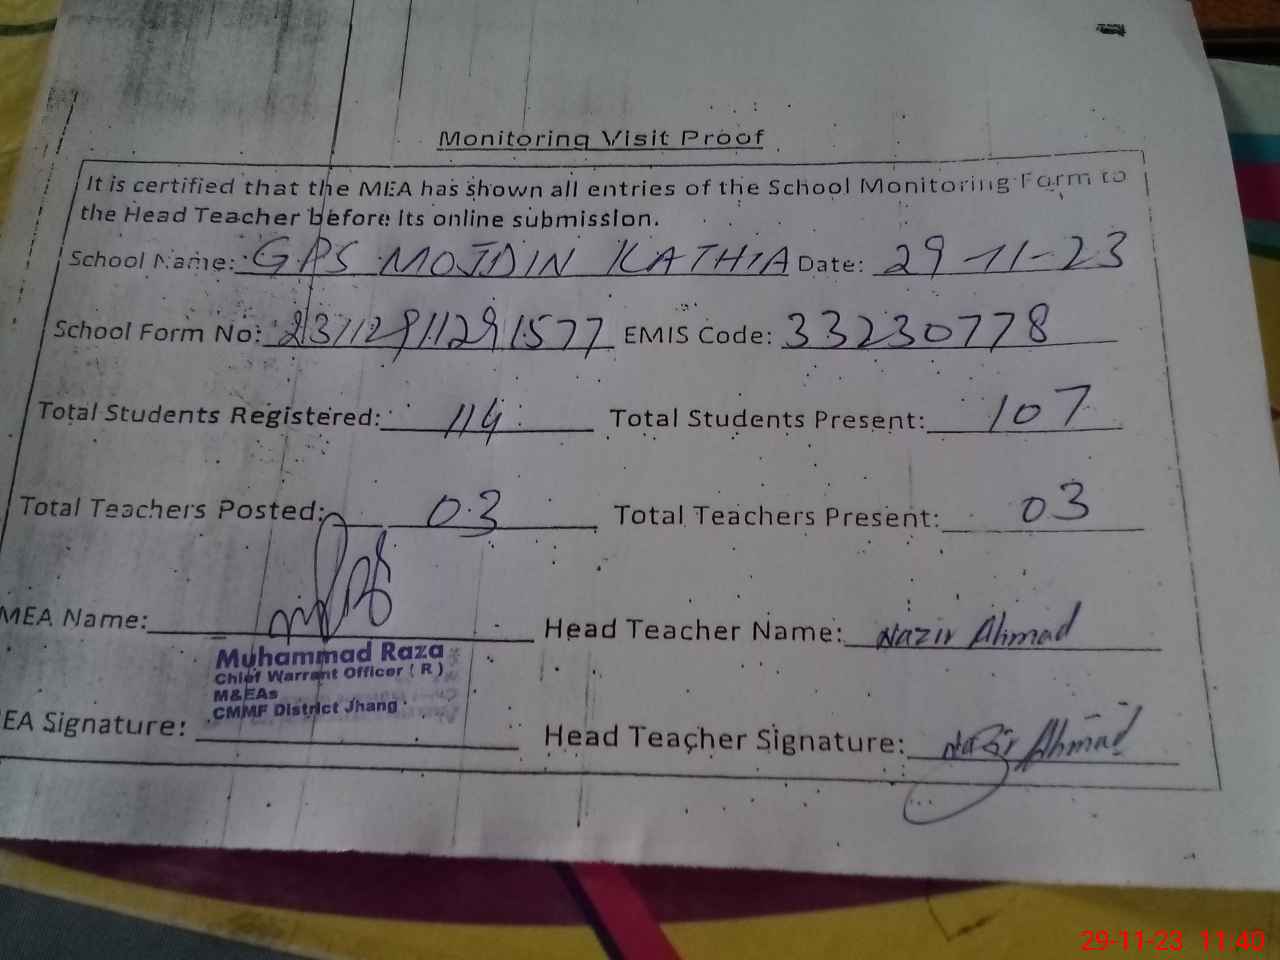 Monitoring Visit Proof
It is certified that the MEA has shown all entries of the School Monitoring Form to
the Head Teacher before its online submission.
School Name: GPS MOJDIN KATHIA Date: 29-11-23
School Form No: 23712911291577 EMIS Code: 33230778
Total Students Registered: 114 Total Students Present: 107
Total Teachers Posted: 03 Total Teachers Present: 03
MEA Name: Head Teacher Name: Nazir Ahmad
Muhammad Raza
Chief Warrant Officer (R)
M&EAs
CMMF District Jhang
EA Signature: Head Teacher Signature: Nazir Ahmad
29-11-23 11:40